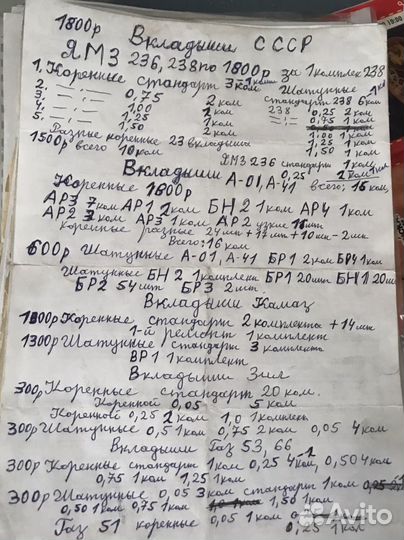 1800р Вкладыши СССР
ЯМЗ 236, 238 по 1800р за 1 комплек 238
1. Коренные стандарт 3 ком Шатунные
2. —„— 0,75 2 ком стандарт 238 6 ком
3. —„— 1,00 2 ком 238 0,25 2 ком
4. —„— 1,25 1 ком —„— 0,75 1 ком
5. —„— 1,50 2 ком 1,00 1 ком
Разные коренные 23 вкладыша 1,25 1 ком
1500р всего 10 ком 1,50 1 ком
ЯМЗ 236 стандарт 1 ком
Вкладыши 0,25 2 ком
Коренные 1800р А-01, А-41 всего: 16 ком,
АР3 7 ком АР1 1 ком БН2 1 ком АР4 1 ком
АР2 3 ком АР3 1 ком АР2 узкие
коренные разные 24 шт + 17 шт + 10 шт - 2 шт
Всего: 16 ком
600р Шатунные А-01, А-41 БР1 2 ком БР4 1 ком
Шатунные БН2 1 комплект БР1 20 шт БН1 20 шт
БР2 54 шт БР3 2 шт.
Вкладыши Камаз
1800р Коренные стандарт 2 комплекта + 14 шт
1-й ремонт 1 комплект
1300р Шатунные стандарт 3 комплекта
ВР1 1 комплект
Вкладыши Зил
300р Коренные стандарт 20 ком.
Коренной 0,05 5 ком
Коренной 0,25 2 ком 1,0 1 комплект
300р Шатунные 0,5 1 ком 0,75 2 ком 0,05 4 ком
Вкладыши Газ 53, 66
300р Коренные стандарт 1 ком 0,25 4 ком, 0,50 4 ком
0,75 1 ком 1,25 1 ком
300р Шатунные 0,05 3 ком стандарт 1 ком
0,50 1 ком 0,75 1 ком 1,50 1 ком
Газ 51 коренные 0,05 1 ком
0,25 1 ком
Avito